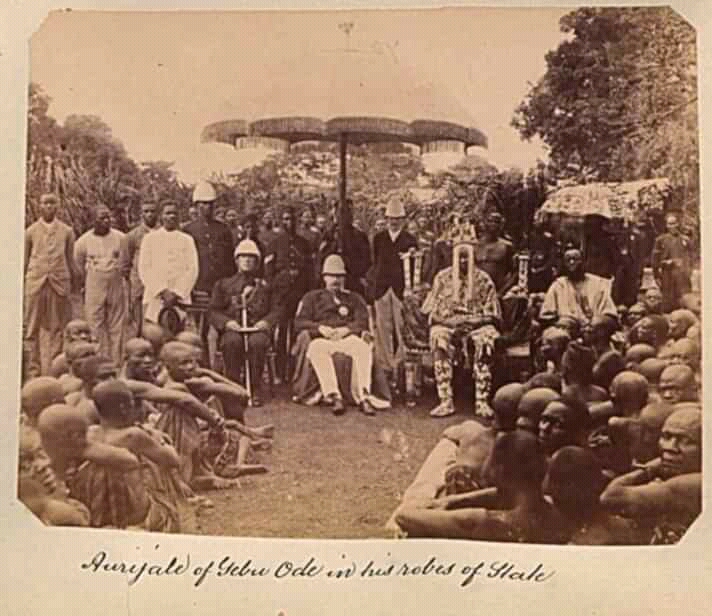 Aurijale of Gebu Ode in his robes of State